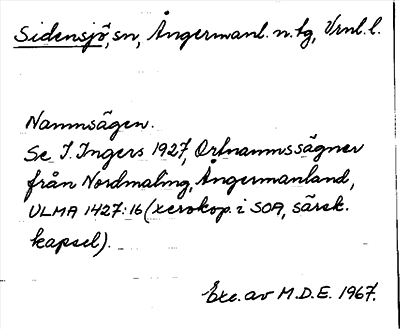 Sidensjö, sn, Ångermanl. n. tg, Vrnl. l.
Namnsägen.
Se I. Ingers 1927, Ortnamnssägner
från Nordmaling, Ångermanland,
ULMA 1427:16 (xerokop. i SOA, särsk.
kapsel).
Exc. av M.D.E. 1967.